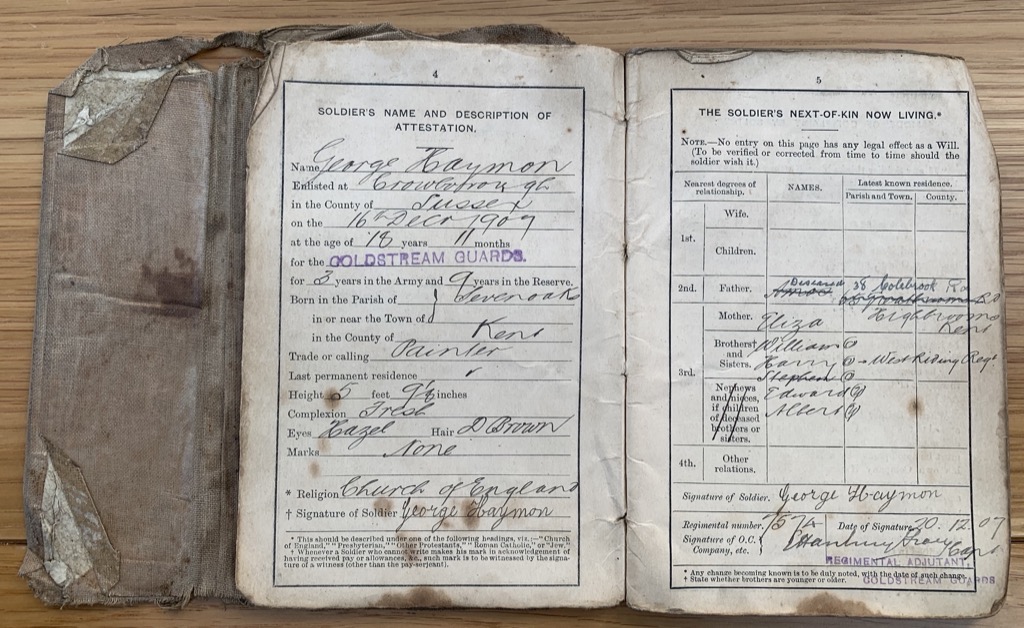 4
SOLDIER'S NAME AND DESCRIPTION OF
ATTESTATION.
Name George Haymon
Enlisted at Crowborough
in the County of Sussex
on the 16th Decr 1907
at the age of 18 years 11 months
for the COLDSTREAM GUARDS.
for 3 years in the Army and 9 years in the Reserve.
Born in the Parish of } Sevenoaks
in or near the Town of
in the County of Kent
Trade or calling Painter
Last permanent residence
Height 5 feet 9½ inches
Complexion Fresh
Eyes Hazel Hair D Brown
Marks None
* Religion Church of England
† Signature of Soldier George Haymon
* This should be described under one of the following headings, viz.:—"Church
of England," "Presbyterian," "Other Protestants," "Roman Catholic," or "Jew."
† Whenever a Soldier who cannot write makes his mark in acknowledgement of
having received pay or allowances, &c., such mark is to be witnessed by the signa-
ture of a witness (other than the pay-serjeant).
5
THE SOLDIER'S NEXT-OF-KIN NOW LIVING.*
NOTE.—No entry on this page has any legal effect as a Will.
(To be verified or corrected from time to time should the
soldier wish it.)
Nearest degrees of
relationship.
NAMES.
Latest known residence.
Parish and Town,
County.
1st.
Wife.
Children.
2nd.
Father.
Deceased
38 Colebrook Rd
Highbrooms
Kent
3rd.
Mother.
Eliza
Brothers†
and
Sisters.
William
Harry West Riding Regt
Stephen
Nephews
and nieces,
if children
of deceased
brothers or
sisters.
Edward
Albert
4th.
Other
relations.
Signature of Soldier. George Haymon
Regimental number. Date of Signature 20.12.07
Signature of O.C. }
Company, etc. Capt
REGIMENTAL ADJUTANT,
COLDSTREAM GUARDS
* Any change becoming known is to be duly noted, with the date of such change.
† State whether brothers are younger or older.